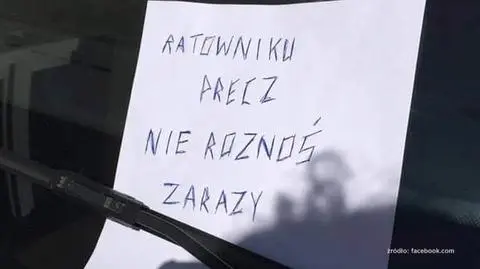 RATOWNIKU
PRECZ
NIE ROZNOŚ
ZARAZY
źródło: facebook.com